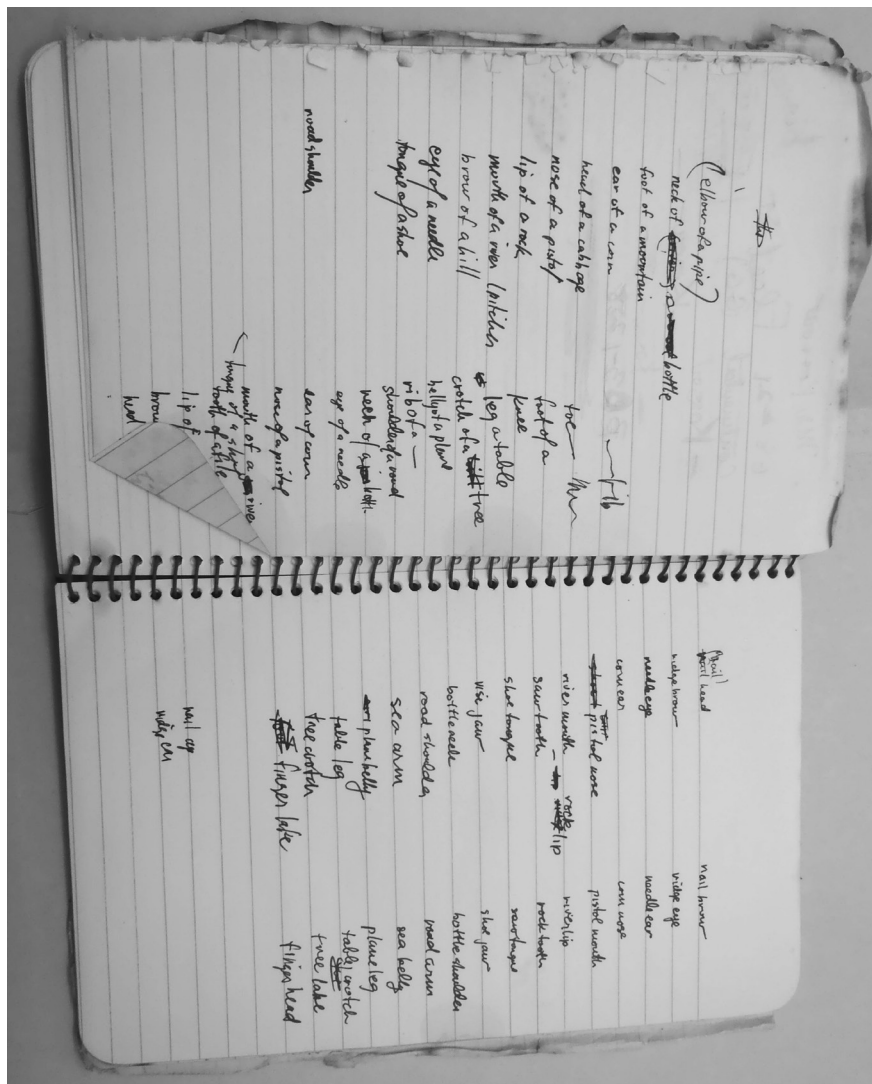 the
(elbow of a pipe)
neck of a bottle
foot of a mountain
ear of a corn
head of a cabbage
nose of a pistol
lip of a rock
mouth of a river (pitcher
brow of a hill
eye of a needle
tongue of a shoe
road shoulder
rib
toe
foot of a
knee
leg a table
crotch of a tree
belly of a plane
rib of a —
shoulder of a road
neck of a bottle
eye of a needle
ear of corn
nose of a pistol
mouth of a river
tongue of a shoe
tooth of a file
lip of
brow
head
(nail)
nail head
ridge brow
needle eye
corn ear
pistol nose
river mouth – rock lip
saw tooth
shoe tongue
vise jaw
bottle neck
road shoulder
sea arm
plane belly
table leg
tree crotch
finger lake
nail brow
ridge eye
needle ear
corn nose
pistol mouth
river lip
rock tooth
saw tongue
shoe jaw
bottle shoulder
road arm
sea belly
plane leg
table crotch
tree lake
finger head
nail
ridge ear